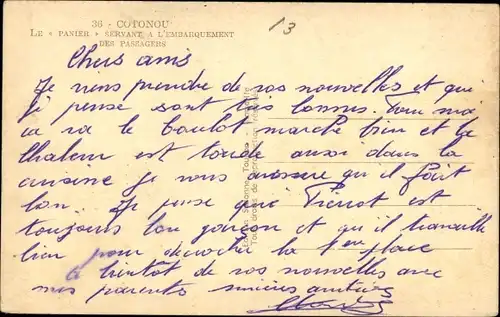 36 - COTONOU
LE « PANIER » SERVANT A L'EMBARQUEMENT
DES PASSAGERS
13
Chers amis
Je viens prendre de vos nouvelles et qui
je pense sont très bonnes. Pour moi
ca va le boulot marche bien et la
chaleur est toude aussi dans la
cuisine je vous assure qu il fait
bon. Je pense que Pierrot est
toujours bon garçon et qu il travaille
bien pour décrocher la 1ere place
a bientôt de vos nouvelles avec
mes parents sincères amitiés